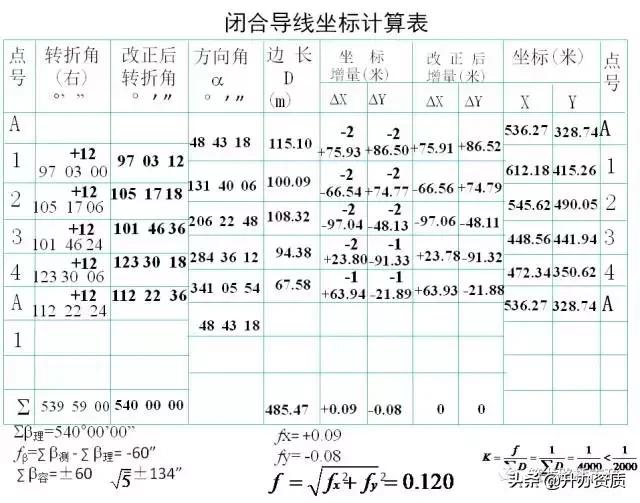 闭合导线坐标计算表
点号 转折角(右)°′″ 改正后转折角°′″ 方向角α°′″ 边长D(m) 坐标增量(米) 改正后增量(米) 坐标(米) 点号
ΔX ΔY ΔX ΔY X Y
A 536.27 328.74 A
48 43 18 115.10 -2 -2
+75.93 +86.50 +75.91 +86.52
1 +12 97 03 00 97 03 12 612.18 415.26 1
131 40 06 100.09 -2 -2
-66.54 +74.77 -66.56 +74.79
2 +12 105 17 06 105 17 18 545.62 490.05 2
206 22 48 108.32 -2 -2
-97.04 -48.13 -97.06 -48.11
3 +12 101 46 24 101 46 36 448.56 441.94 3
284 36 12 94.38 -2 -1
+23.80 -91.33 +23.78 -91.32
4 +12 123 30 06 123 30 18 472.34 350.62 4
341 05 54 67.58 -1 -1
+63.94 -21.89 +63.93 -21.88
A +12 112 22 24 112 22 36 536.27 328.74 A
48 43 18
1
Σ 539 59 00 540 00 00 485.47 +0.09 -0.08 0 0
Σβ理=540°00'00"
fβ=Σβ测-Σβ理= -60"
Σβ容=±60 √5 ±134"
fx= +0.09
fy= -0.08
f=√fx²+fy²=0.120
K = f/ΣD = 1/(ΣD/f) = 1/4000 < 1/2000
头条 @升办资质